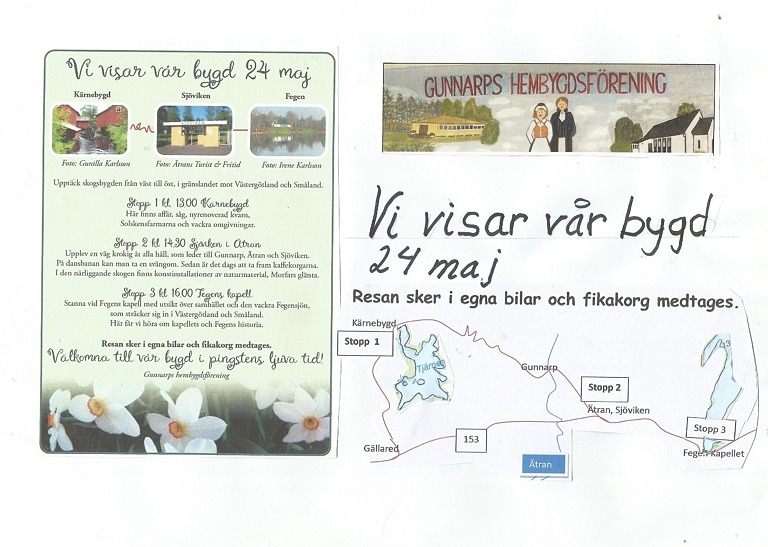 Vi visar vår bygd 24 maj
Kärnebygd
Sjöviken
Fegen
Foto: Gunilla Karlson
Foto: Ätrans Turist & Fritid
Foto: Irene Karlson
Upptäck skogsbygden från väst till öst, i gränslandet mot Västergötland och Småland.
Stopp 1 kl. 13.00 Kärnebygd
Här finns affär, såg, nyrenoverad kvarn,
Solskensfarmarna och vackra omgivningar.
Stopp 2 kl 14.30 Sjöviken i Ätran
Upplev en väg krokig åt alla håll, som leder till Gunnarp, Ätran och Sjöviken.
På dansbanan kan man ta en svängom. Sedan är det dags att ta fram kaffekorgarna.
I den närliggande skogen finns konstinstallationer av naturmaterial, Morfars glänta.
Stopp 3 kl 16.00 Fegens kapell.
Stanna vid Fegens kapell med utsikt över samhället och den vackra Fegensjön,
som sträcker sig in i Västergötland och Småland.
Här får vi höra om kapellets och Fegens historia.
Resan sker i egna bilar och fikakorg medtages.
Välkomna till vår bygd i pingstens ljuva tid!
Gunnarps hembygdsförening
GUNNARPS HEMBYGDSFÖRENING
Vi visar vår bygd
24 maj
Resan sker i egna bilar och fikakorg medtages.
Kärnebygd
Stopp 1
Gunnarp
Stopp 2
Ätran, Sjöviken
Stopp 3
153
Gällared
Kapellet
Ätran